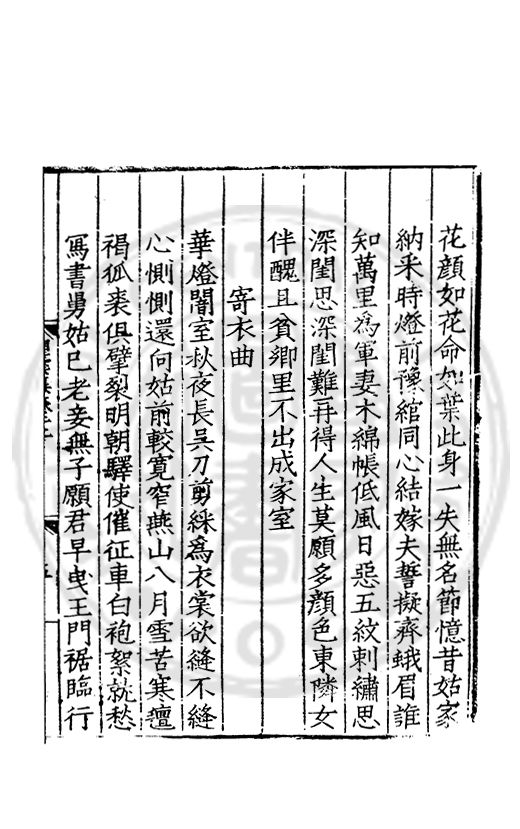 花顏如花命如葉此身一失無名節憶昔姑家
納釆時燈前豫綰同心結嫁夫誓擬齊蛾眉誰
知萬里為軍妻木綿帳低風日惡五紋刺繡思
深閨思深閨難再得人生莫願多顏色東隣女
伴醜且貧鄉里不出成家室
寄衣曲
華燈闇室秋夜長吳刀剪綵為衣裳欲縫不縫
心惻惻還向姑前較寬窄燕山八月雪苦寒氊
褐狐裘俱擘裂明朝驛使催征車白袍絮就愁
寫書舅姑巳老妾無子願君早曳王門裾臨行